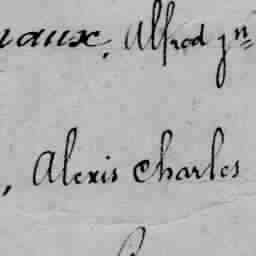 naux, Alfred Jn
, Alexis Charles